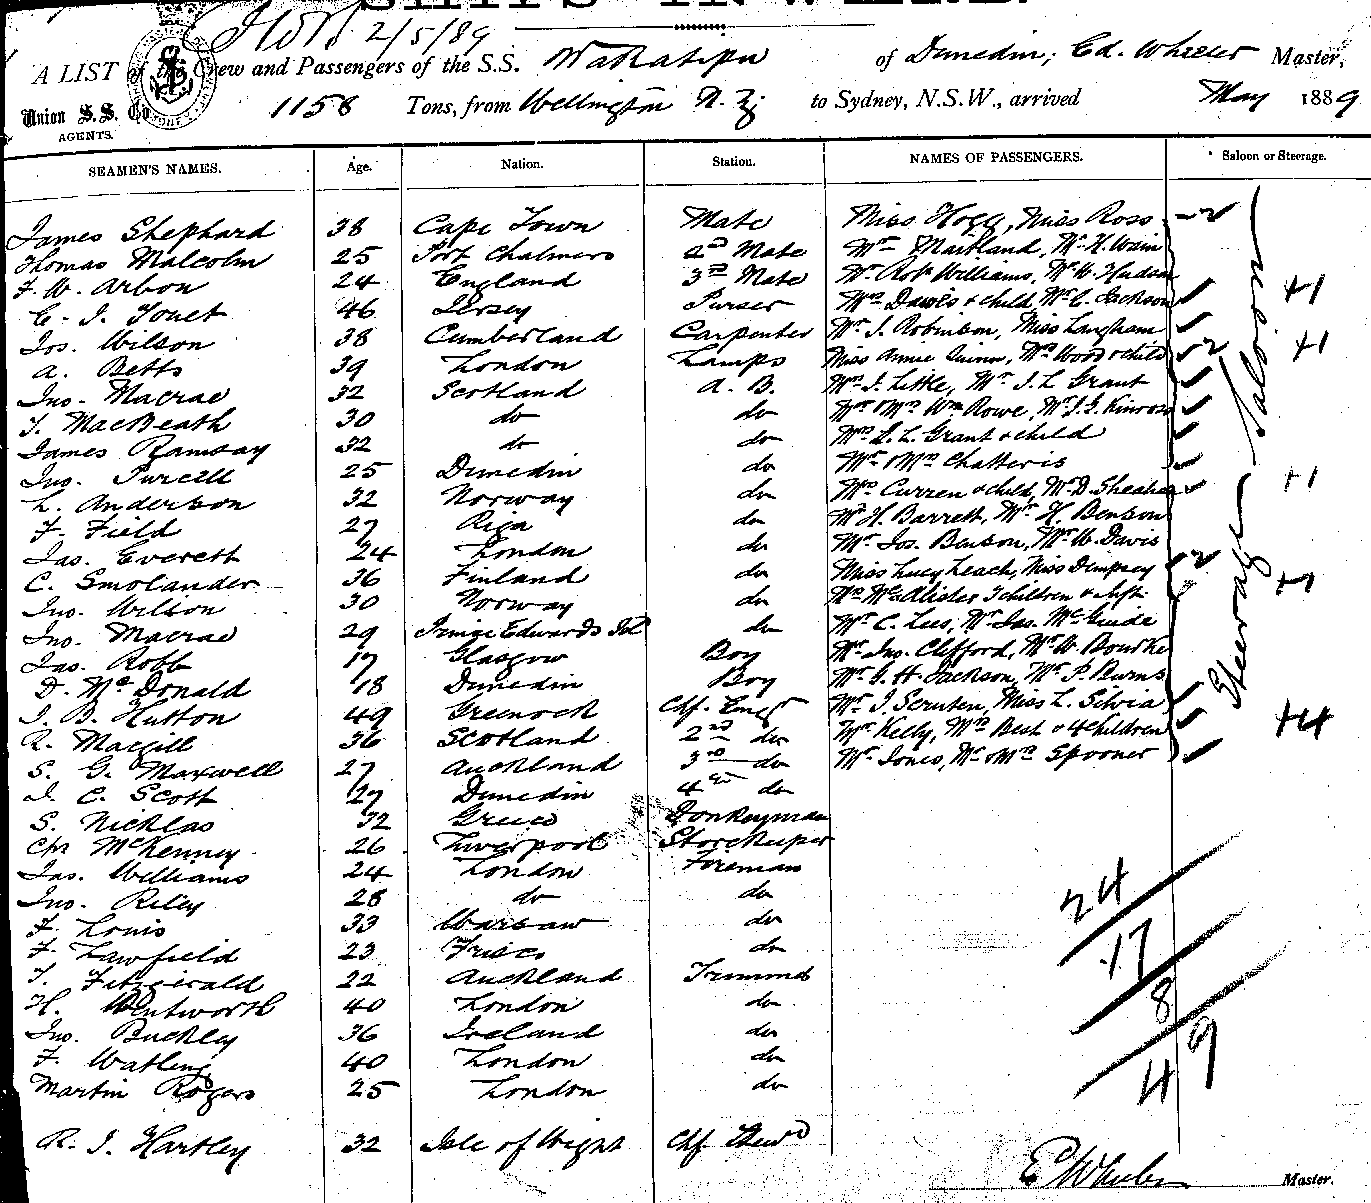 SHIPS INWARD.
2/5/89
A LIST of the Crew and Passengers of the S.S. Wakatipu of Dunedin, Ed. Wheeler Master,
Union S.S. Co. 1158 Tons, from Wellington N.Z. to Sydney, N.S.W., arrived May 1889
AGENTS.
SEAMEN'S NAMES. Age. Nation. Station. NAMES OF PASSENGERS. Saloon or Steerage.
James Shephard 38 Cape Town Mate Miss Hogg, Miss Ross 2
Thomas Malcolm 25 Port Chalmers 2nd Mate Mr Maitland, Mr H. Wain
F. W. Arbon 24 England 3rd Mate Mr Robt Williams, Mr W. Hudson
C. J. Jouet 46 Jersey Purser Mrs Davies & child, Mr C. Jackson +1
Jos. Wilson 38 Cumberland Carpenter Mr J. Robinson, Miss Langham
A. Betts 39 London Lamps Miss Annie Quinn, Mrs Wood & child 2 +1
Jno. Macrae 32 Scotland A. B. Mrs J. Little, Mr J. L Grant
T. MacBeath 30 do do Mr & Mrs Wm Rowe, Mr J. G. Kinross
James Ramsay 32 do do Mrs L. L. Grant & child
Jno. Purcell 25 Dunedin do Mr & Mrs Chatteris
L. Anderson 32 Norway do Mrs Curren & child, Mr D. Sheahan +1
F. Field 27 Riga do Mr H. Barrett, Mr H. Benson
Jas. Everett 24 London do Mr Jos. Benson, Mr W. Davis
C. Smolander 36 Finland do Miss Lucy Leach, Miss Dempsey 2
Jno. Wilson 30 Norway do Mrs McAllister children &
Jno. Macrae 29 Prince Edwards Isl do Mr C. Lees, Mr Jas. McGuide
Jas. Robb 17 Glasgow Boy Mr Jno. Clifford, Mr W. Bourke
D. McDonald 18 Dunedin Boy Mr G. H. Jackson, Mr P. Burns
J. B. Hutton 49 Greenock Chf. Engr Mr J. Scruten, Miss L. Silvia
R. Macgill 36 Scotland 2nd do Mr Kelly, Mrs Best & 4 children +4
S. G. Maxwell 27 Auckland 3rd do Mr Jones, Mr & Mrs Spooner
J. C. Scott 27 Dunedin 4th do
S. Nicklas 32 Greece Donkeyman
Chs McKenney 26 Liverpool Storekeeper
Jas. Williams 24 London Foreman
Jno. Riley 28 do do
F. Louis 33 Warsaw do
F. Lawfield 23 Frisco do
T. Fitzgerald 22 Auckland Trimmer
H. Wentworth 40 London do
Jno. Buckley 36 Ireland do
F. Watling 40 London do
Martin Rogers 25 London do
R. J. Hartley 32 Isle of Wight Chf Stewd
Saloon
Steerage
24
17
8
49
E Wheeler Master.